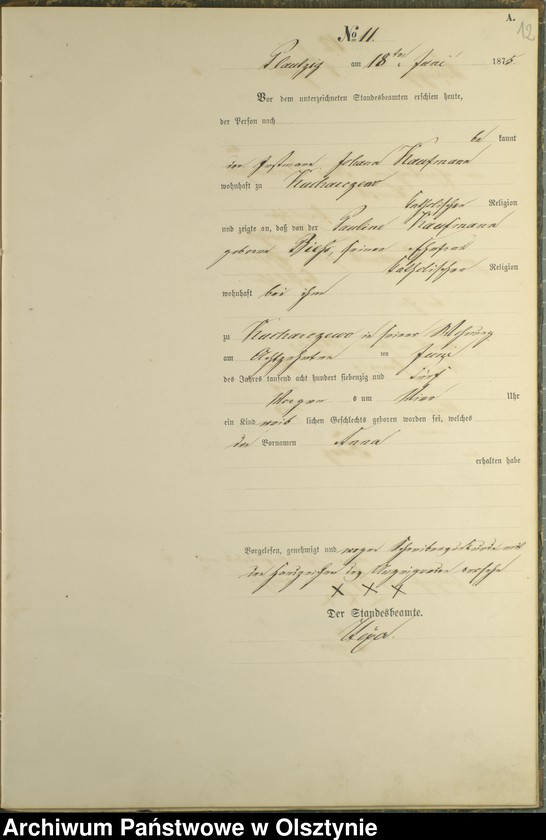 A.
12
No 11.
Plautzig am 18ten Juni 1875.
Vor dem unterzeichneten Standesbeamten erschien heute,
der Person nach
be kannt
der Johann Kaufmann
wohnhaft zu Kucharczewo
katholischer Religion
und zeigte an, daß von der Pauline Kaufmann
geborene seiner Ehefrau
katholischer Religion
wohnhaft bei ihm
zu Kucharczewo in seiner Wohnung
am Achtzehnten ten Juni
des Jahres tausend acht hundert siebenzig und fünf
Morgen s um Uhr
ein Kind weib lichen Geschlechts geboren worden sei, welches
den Vornamen Anna
erhalten habe
Vorgelesen, genehmigt und wegen Schreibensunkunde mit
den Handzeichen des Anzeigenden versehen
X X X
Der Standesbeamte.
Archiwum Państwowe w Olsztynie